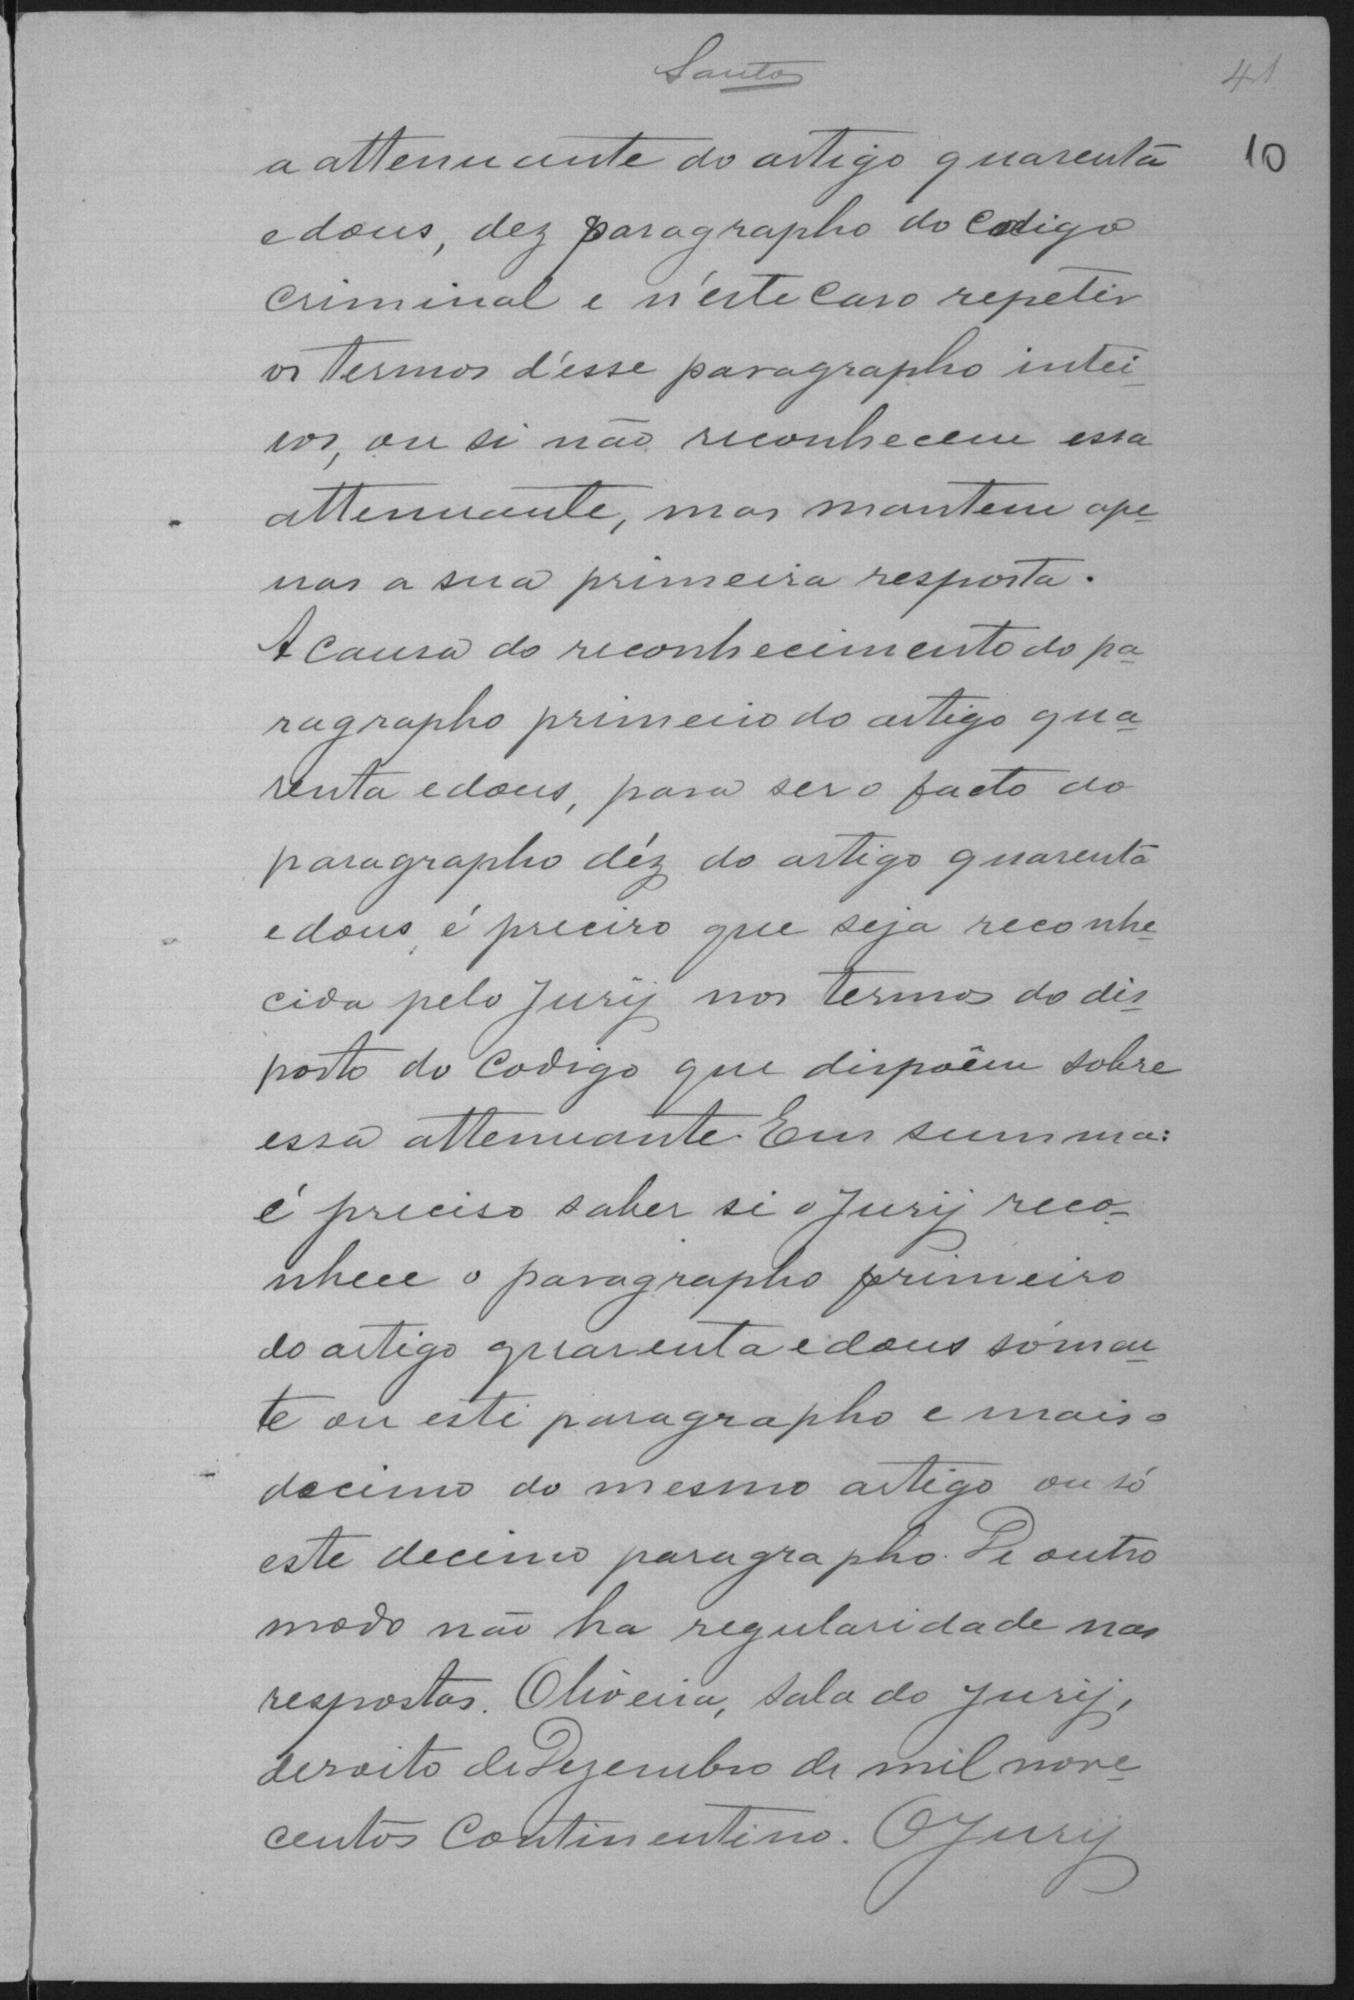 Santos
41
10
a attenuante do artigo quarenta
e dous, dez paragrapho do Codigo
Criminal e n'este caso repetir
os termos d'esse paragrapho intei-
ros, ou si não reconhecem essa
attenuante, mas mantem ape-
nas a sua primeira resposta.
A causa do reconhecimento do pa-
ragrapho primeiro do artigo qua-
renta e dous, para ser o facto do
paragrapho déz do artigo quarenta
e dous, é preciso que seja reconhe-
cida pelo Jury nos termos do dis-
posto do Codigo que dispoêm sobre
essa attenuante. Em summa:
é preciso saber si o Jury reco-
nhece o paragrapho primeiro
do artigo quarenta e dous sómen-
te ou este paragrapho e mais o
decimo do mesmo artigo ou só
este decimo paragrapho. De outro
modo não ha regularidade nas
respostas. Oliveira, sala do Jury,
desoito de Dezembro de mil nove-
centos Continentino. O Jury